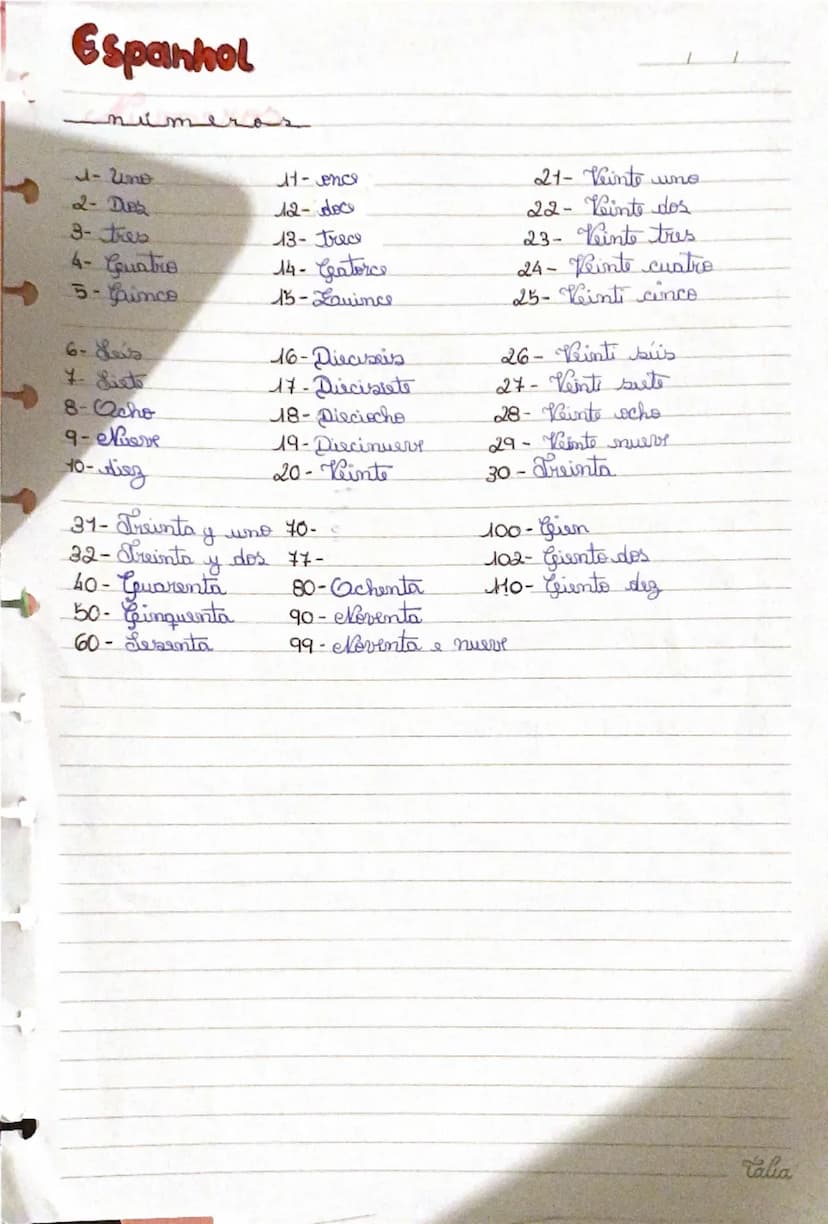 Espanhol
/ /
números
1- Uno 11- once 21- Veinte uno
2- Dos 12- doce 22- Veinte dos
3- tres 13- trece 23- Veinte tres
4- Cuatro 14- Catorce 24- Veinte cuatro
5- Cinco 15- Quince 25- Veinti cinco
6- Seis 16- Dieciseis 26- Veinti siis
7- Siete 17- Diecisiete 27- Veinti siete
8- Ocho 18- Dieciocho 28- Veinte ocho
9- Nueve 19- Diecinueve 29- Veinte nueve
10- diez 20- Veinte 30- Treinta
31- Treinta y uno 70- 100- Cien
32- Treinta y dos 77- 102- Ciento dos
40- Cuarenta 80- Ochenta 110- Ciento dez
50- Cinquenta 90- Noventa
60- Sesenta 99- Noventa e nueve
Talia